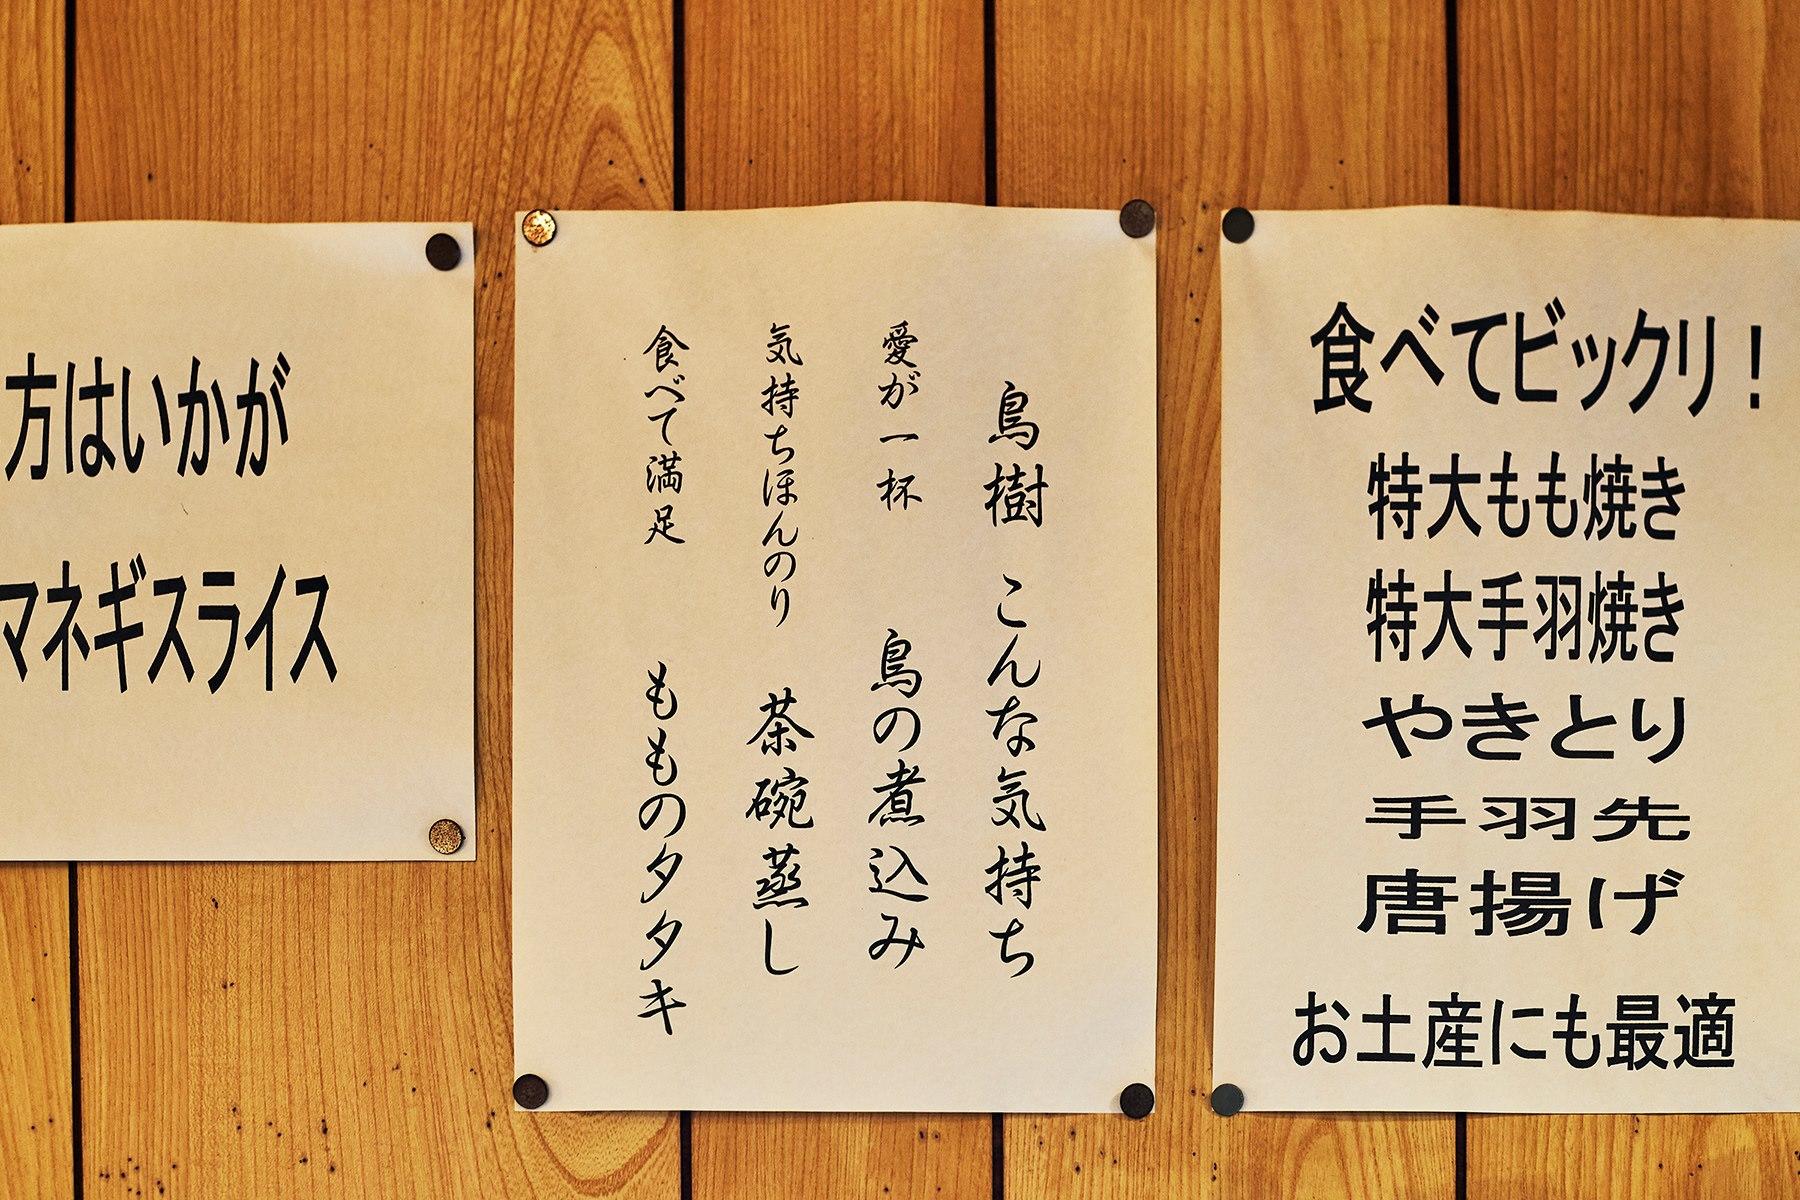 方はいかが
マネギスライス
鳥樹 こんな気持ち
愛が一杯 鳥の煮込み
気持ちほんのり 茶碗蒸し
食べて満足 もものタタキ
食べてビックリ！
特大もも焼き
特大手羽焼き
やきとり
手羽先
唐揚げ
お土産にも最適